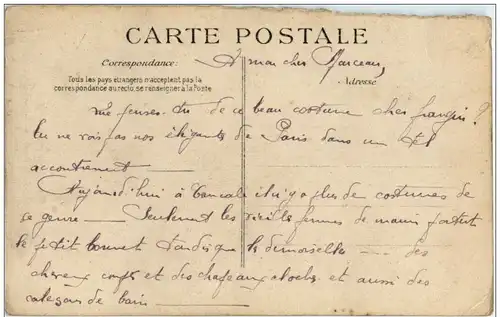 CARTE POSTALE
Correspondance: A mon cher Marceau,
Adresse
Tous les pays étrangers n'acceptent pas la
correspondance au recto, se renseigner à la Poste
de ce beau costume cher frangin?
tu ne vois pas nos élégantes de Paris dans un tel
accoutrement
Aujourd'hui à Cancale il n'y a plus de costumes de
ce genre — Seulement les vieilles femmes de marin portent
le petit bonnet tandis que les demoiselles — des
cheveux coupés et des chapeaux cloches et aussi des
caleçons de bain —